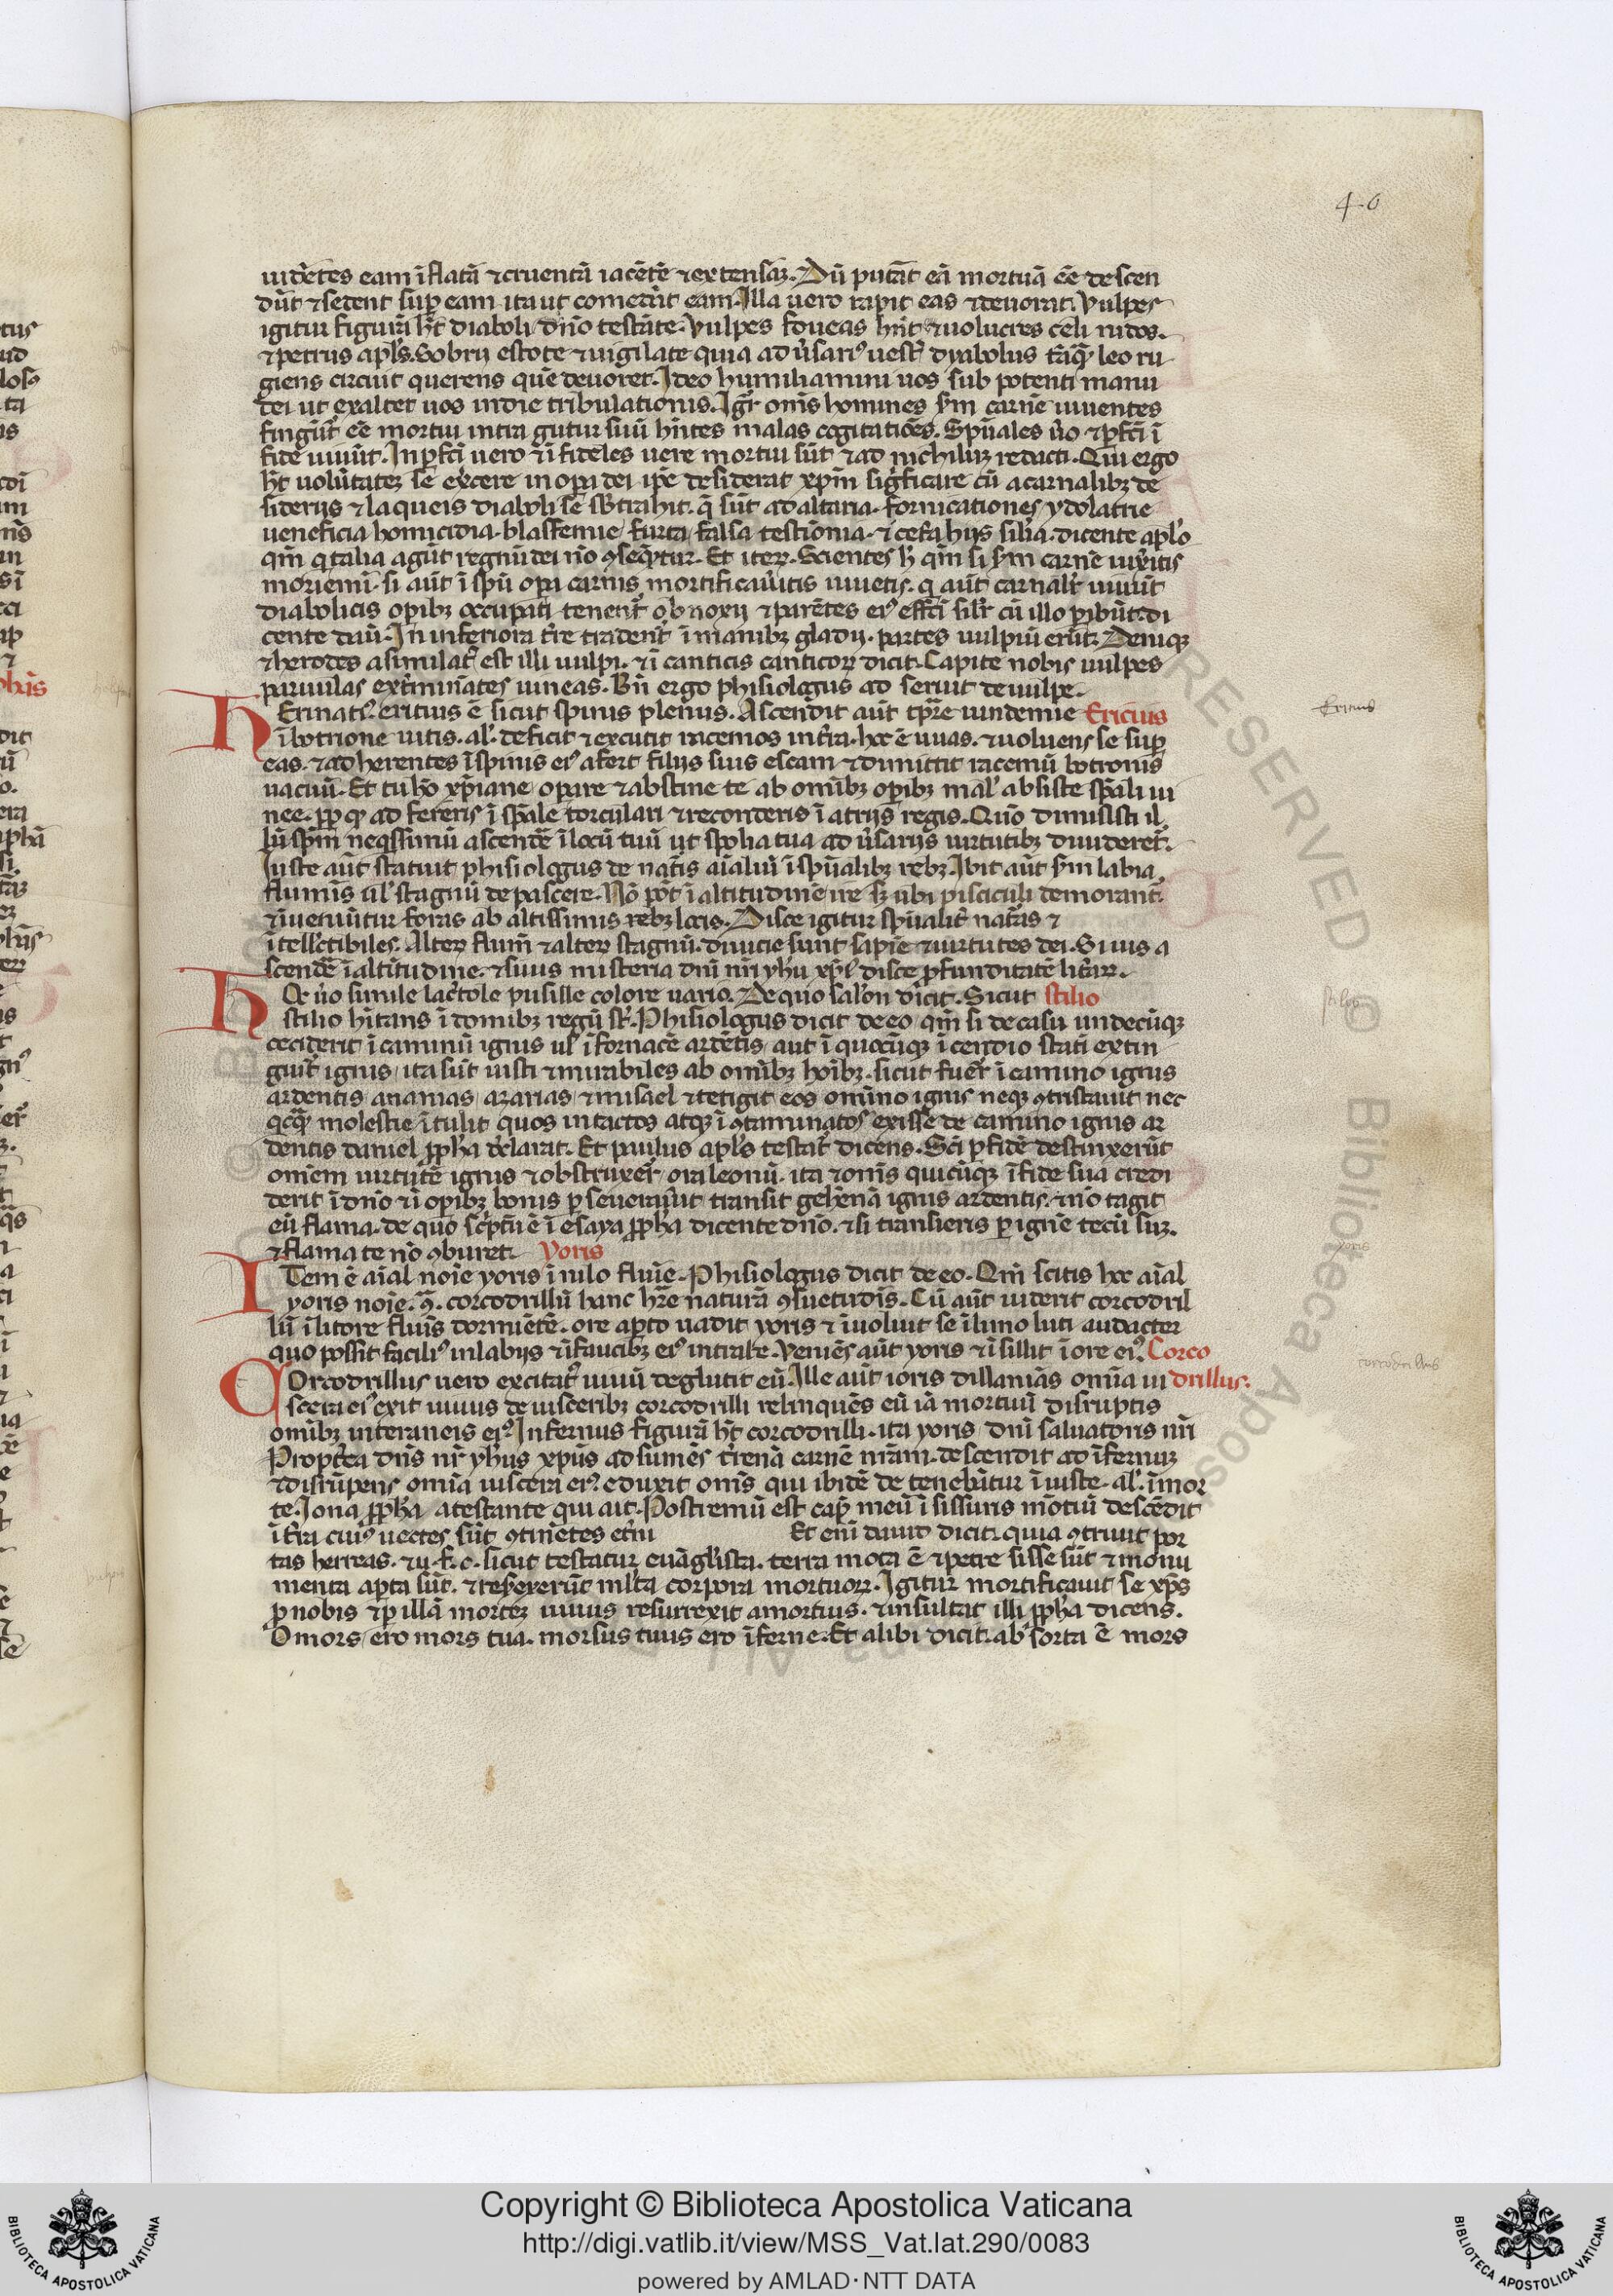 40
uidẽtes eam ĩflatã ⁊cruentã iacẽtẽ ⁊extensaꝫ. Dũ putãt eã mortuã eẽ descen
dũt ⁊sedent suꝑ eam ita ut comedãt eam. Illa uero rapit eas ⁊deuorat. Vulpes
igitur figurã hꝫ diaboli dño testãte. Vulpes foueas hñt ⁊uolucres celi nidos.
⁊petrus apl's. Sobrij estote ⁊uigilate quia aduersari⁹ uest̃ dyabolus tãq̃ leo ru
giens circuit querens quẽ deuoret. Ideo humiliamini uos sub potenti manu
dei ut exaltet uos indie tribulationis. Igr̃ om̃s homines s'm carnẽ uiuentes
fingũt eẽ mortui intra gutur suũ hñtes malas cogitatiões. Spũales ũo ⁊ꝑfcĩ ĩ
fide uiuũt. Inꝑfcĩ uero ⁊ĩfideles uere mortui sũt ⁊ad nichiluꝫ redacti. Qui ergo
hꝫ uolũtateꝫ se ex̃cere in oꝑa dei ip̃e desiderat xp̃m sigñficare cũ acarnalibꝫ de
siderijs ⁊laqueis diaboli se sb̾trahit. q̃ sũt adaltaria. fornicationes ydolatrie
ueneficia homicidia. blasfemie furta falsa testĩonia. ⁊cet̃a hijs sil'ia. dicente apl'o
qm̃ q talia agũt regnũ dei nõ ꝯseq̃ntur. Et iteꝝ. Scientes h̾ qm̃ si s'm carnẽ uix̃itis
moriemĩ. si aũt ĩ spũ oꝑa carnis mortificaũitis uiuetis. q aũt carnalit̃ uiuũt
diabolicis oꝑibꝫ occupati tenent̃ obnoxij ⁊parẽtes ei⁹ effcĩ sil'r cũ illo ꝑibũt. di
cente dauid. In inferiora t̃re tradent̃ ĩ manibꝫ gladij. partes uulpiũ erũt. Deniqꝫ
⁊herodes asimilat⁹ est illi uulpi. ⁊ĩ canticis canticoꝝ dicit. Capite nobis uulpes
paruulas ext̃minãtes uineas. Bñ ergo phisiologus ad seruit de uulpe.
HErinati⁹. ericius ẽ sicut spinis plenus. Ascendit aũt tp̃re uindemie Ericius
ĩ botrione uitis. al'. deficit ⁊excutit racemos infra. hoc ẽ uuas. ⁊uoluens se suꝑ
eas. ⁊ad herentes ĩspinis ei⁹ afert filijs suis escam ⁊dimittit racemũ botronis
uacuũ. Et tu hõ xp̃iane opare ⁊abstine te ab om̃ibꝫ oꝑibꝫ mal' absiste sp̃ali ui
nee. ꝓp qd' ad fereris ĩ sp̃ale torculari ⁊reconderis ĩ atrijs regis. Quõ dimisisti il
lũ spm̃ neqssimũ ascendẽ ĩ locũ tuũ ut spolia tua aduersarijs uirtutibꝫ diuideret̃.
Iuste aũt statuit phisiologus de nat̃is aĩaliũ ĩ spũalibꝫ rebꝫ. Ibit aũt s'm labia
flumĩs ul' stagnũ depascere. Nõ põt ĩ altitudinẽ ire sꝫ ubi pisciculi demorant̃.
⁊ĩueniũtur foras ab altissimis rebꝫ locis. Disce igitur spũalit̃ nat̃as ⁊
ĩtell'ctibiles. Alteꝝ flum̃ ⁊alteꝝ stagnũ. diuicie sunt sapĩe ⁊uirtutes dei. Si uis a
scendẽ ĩaltĩtudine. ⁊suis misteria dñi nr̃i yh'u xp̃i disce ꝓfunditatẽ litãꝝ.
HOc ũo simile lac̃tole pusille colore uario. De quo sal'on dĩcit. Sicut stilio
stilio hĩtans ĩ domibꝫ regũ st̃. Phisiologus dicit de eo qm̃ si decasu undecũqꝫ
ceciderit ĩ caminũ ignis ul' ĩ fornacẽ ardẽtis aut ĩ quocũqꝫ ĩcendio stati extin
guit̃ ignis ita sũt iusti ⁊mirabiles ab om̃ibꝫ hoĩbꝫ. sicut fuer̃t ĩ camino ignis
ardentis ananias azarias ⁊misael ⁊tetigit eos om̃ino ignis neqꝫ ꝯtristauit nec
qcq̃ molestie ĩtulit quos intactos atqꝫ ĩꝯtaminatos exisse de camino ignis ar
dentis daniel ꝓph'a d'clarat. Et paulus apl's testat̃ dicens. Scĩ ꝑ fidẽ destinxerũt
omẽm uirtutẽ ignis ⁊obstruxer̃t ora leonũ. ita ⁊om̃is quicũqꝫ ĩfide sua credi
derit ĩ dño ⁊ĩ oꝑibꝫ bonis ꝑseueraũit transit gehẽnã ignis ardentis. ⁊nõ tagit
eũ flama. de quo sc̃ptũ ẽ ĩ esaya ꝓph'a dicente dño. ⁊si transieris ꝑ ignẽ tecũ suꝫ.
⁊flama te nõ ꝯburet. Yoris
ITem ẽ aĩal noĩe yoris ĩ nilo fluuĩe. Phisiologus dicit de eo. Qm̃ scitis hoc aĩal
yoris noĩe. q̃. corcodrillũ hanc hr̃e naturã ꝯsuetudĩs. Cũ aũt uiderit corcodril
lũ ĩ litore fluĩs dormiẽtẽ. ore aꝑto uadit yoris ⁊ ĩuoluit se ĩ limo luti audacter
quo possit facili⁹ in labijs ⁊ĩ faucibꝫ ei⁹ intrare. Veniẽs aũt yoris ⁊ĩsillit ĩ ore ei⁹. Corco
COrcodrillus uero excitat⁹ uiuũ deglutit eũ. Ille aũt ioris dillaniãs om̃ia ui drillus.
scera ei⁹ exit uiuus de uisceribꝫ corcodrilli relinquẽs eũ iã mortuũ disruptis
om̃ibꝫ interaneis ei⁹. Infernus figurã hꝫ corcodrilli. ita yoris dñi saluatoris nr̃i
Propt̃ea dñs nr̃ yh'us xp̃us adsumẽs t̃renã carnẽ nr̃am. descendit ad ĩfernuꝫ
⁊disrũpens om̃ia uiscera ei⁹. eduxit om̃s qui ibidẽ detenebãtur ĩ iuste. al'. ĩ mor
te. Iona ꝓph'a atestante qui ait. Postremũ est cap̃ meũ ĩ sissuris mõtiũ descẽdit
ĩ t̃ra cui⁹ uectes sũt ꝯtinẽtes et̃ni Et enĩ dauid dicit. quia ꝯtriuit por
tas herreas. ⁊u. f. c. sicut testatur euãgl'ista. terra mota ẽ ⁊petre sisse sũt ⁊monu
menta aꝑta sũt. ⁊resexerũt ml'ta corpora mortuoꝝ. Igitur mortificauit se xp̃s
ꝓ nobis ⁊ꝑ illã morteꝫ uiuus resurrexit amortuis. ⁊insultat illi ꝓph'a dicens.
O mors ero mors tua. morsus tuus ero ĩferne. Et alibi dicit. ab sorta ẽ mors
Ericius
stilio
yoris
corcodrillus
Copyright © Biblioteca Apostolica Vaticana
http://digi.vatlib.it/view/MSS_Vat.lat.290/0083
powered by AMLAD·NTT DATA